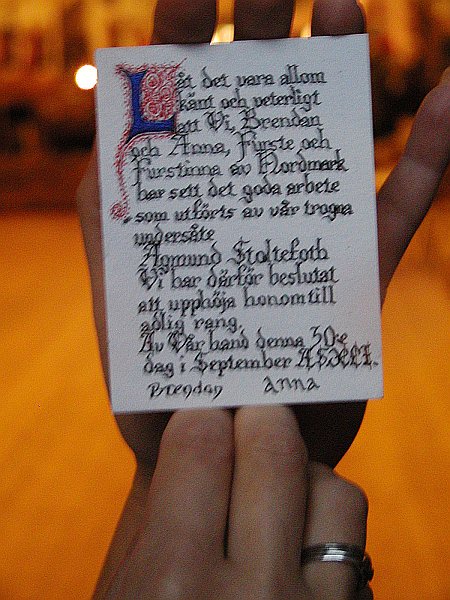 Låt det vara allom
känt och veterligt
att Vi, Brendan
och Anna, Furste och
Furstinna av Nordmark
har sett det goda arbete
som utförts av vår trogna
undersåte
Agmund Stoltefoth
Vi har därför beslutat
att upphöja honom till
adlig rang.
Av Vår hand denna 30:e
dag i September
Brendan Anna